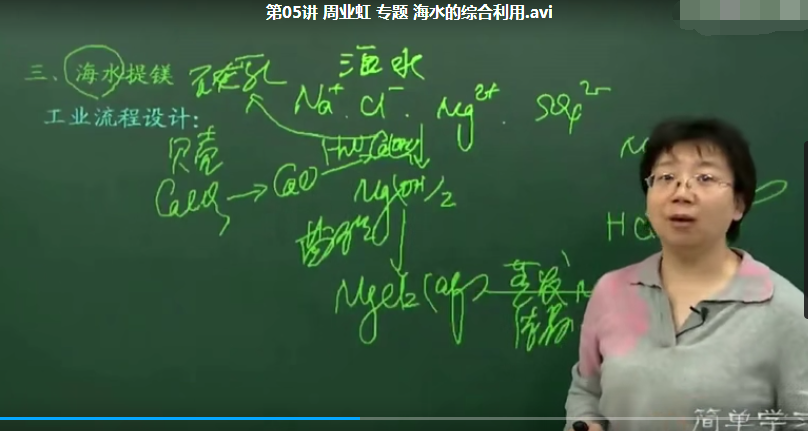 第05讲 周业虹 专题 海水的综合利用.avi
三、海水提镁 石灰乳 海水
Na⁺ . Cl⁻ . Mg²⁺ . SO₄²⁻
工业流程设计：
贝壳
CaCO₃ → CaO
Mg(OH)₂
MgCl₂(aq) 蒸发、
结晶
简单学习